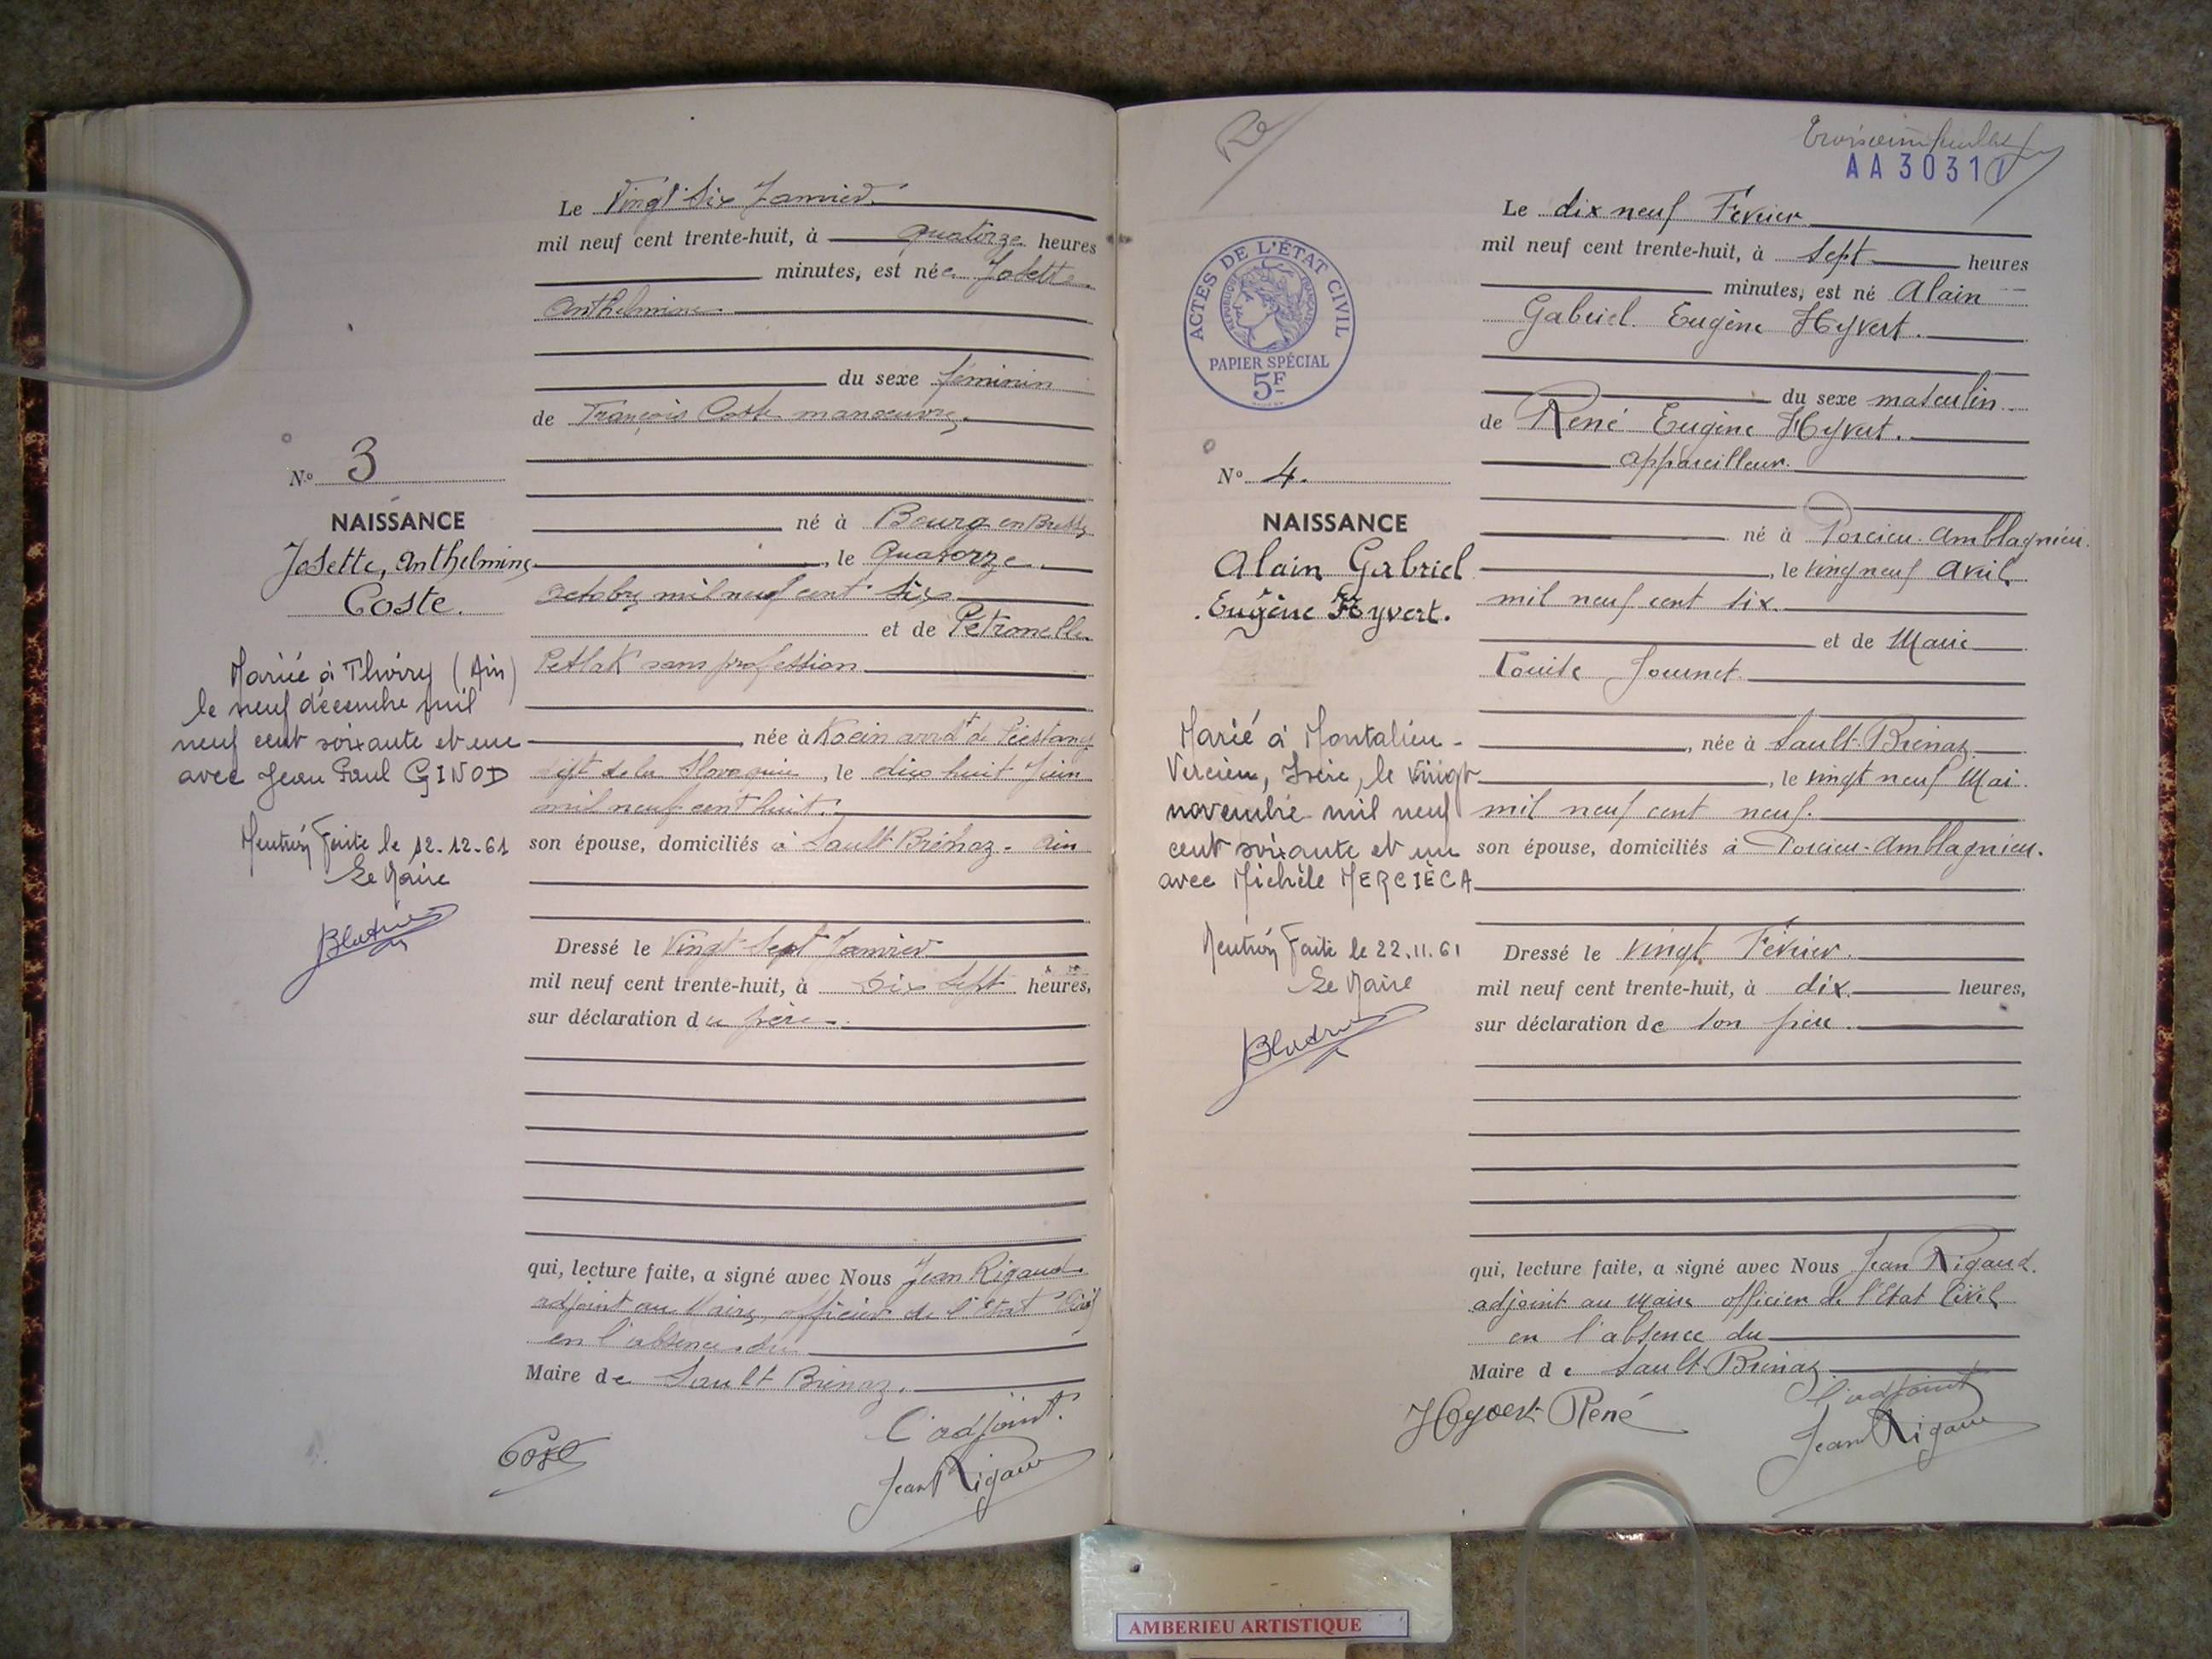 Le Vingt Six Janvier
mil neuf cent trente-huit, à quatorze heures
minutes, est née Josette
Anthelmine
du sexe féminin
de François Coste manœuvre
N° 3
NAISSANCE
Josette, Anthelmine
Coste.
né à Bourg en Bresse
, le Quatorze
octobre mil neuf cent six
et de Pétronelle
Petlak sans profession
Mariée à Thoiry (Ain)
le neuf décembre mil
neuf cent soixante et une
avec Jean Paul GINOD
Mention Faite le 12.12.61
Le Maire
née à Kocin arrdt de Piestany
de la Slovaquie, le dix huit Juin
mil neuf cent huit.
son épouse, domiciliés à Sault-Brénaz. Ain
Dressé le Vingt Sept Janvier
mil neuf cent trente-huit, à Dix Sept heures,
sur déclaration du père
qui, lecture faite, a signé avec Nous Jean Rigaud
adjoint au Maire, officier de l'Etat Civil
en l'absence du
Maire de Sault Brénaz.
L'adjoint.
Coste
Jean Rigaud
Troisième feuillet
AA 3031
ACTES DE L'ÉTAT CIVIL
RÉPUBLIQUE FRANÇAISE
PAPIER SPÉCIAL
5F
Le dix neuf Février
mil neuf cent trente-huit, à sept heures
minutes, est né Alain
Gabriel Eugène Hyvert.
du sexe masculin
de René Eugène Hyvert.
appareilleur.
N° 4.
NAISSANCE
Alain Gabriel
Eugène Hyvert.
né à Porcieu-Amblagnieu.
, le vingt neuf Avril
mil neuf cent six.
et de Marie
Louise Journet.
Marié à Montalieu-
Vercieu, Isère, le vingt
novembre mil neuf
cent soixante et un
avec Michèle MERCIÉCA
Mention Faite le 22.11.61
Le Maire
, née à Sault-Brénaz
, le vingt neuf Mai
mil neuf cent neuf.
son épouse, domiciliés à Porcieu-Amblagnieu.
Dressé le vingt Février.
mil neuf cent trente-huit, à dix heures,
sur déclaration de son père.
qui, lecture faite, a signé avec Nous Jean Rigaud.
adjoint au Maire officier de l'Etat Civil
en l'absence du
Maire de Sault-Brénaz
L'adjoint
Hyvert René
Jean Rigaud
AMBERIEU ARTISTIQUE